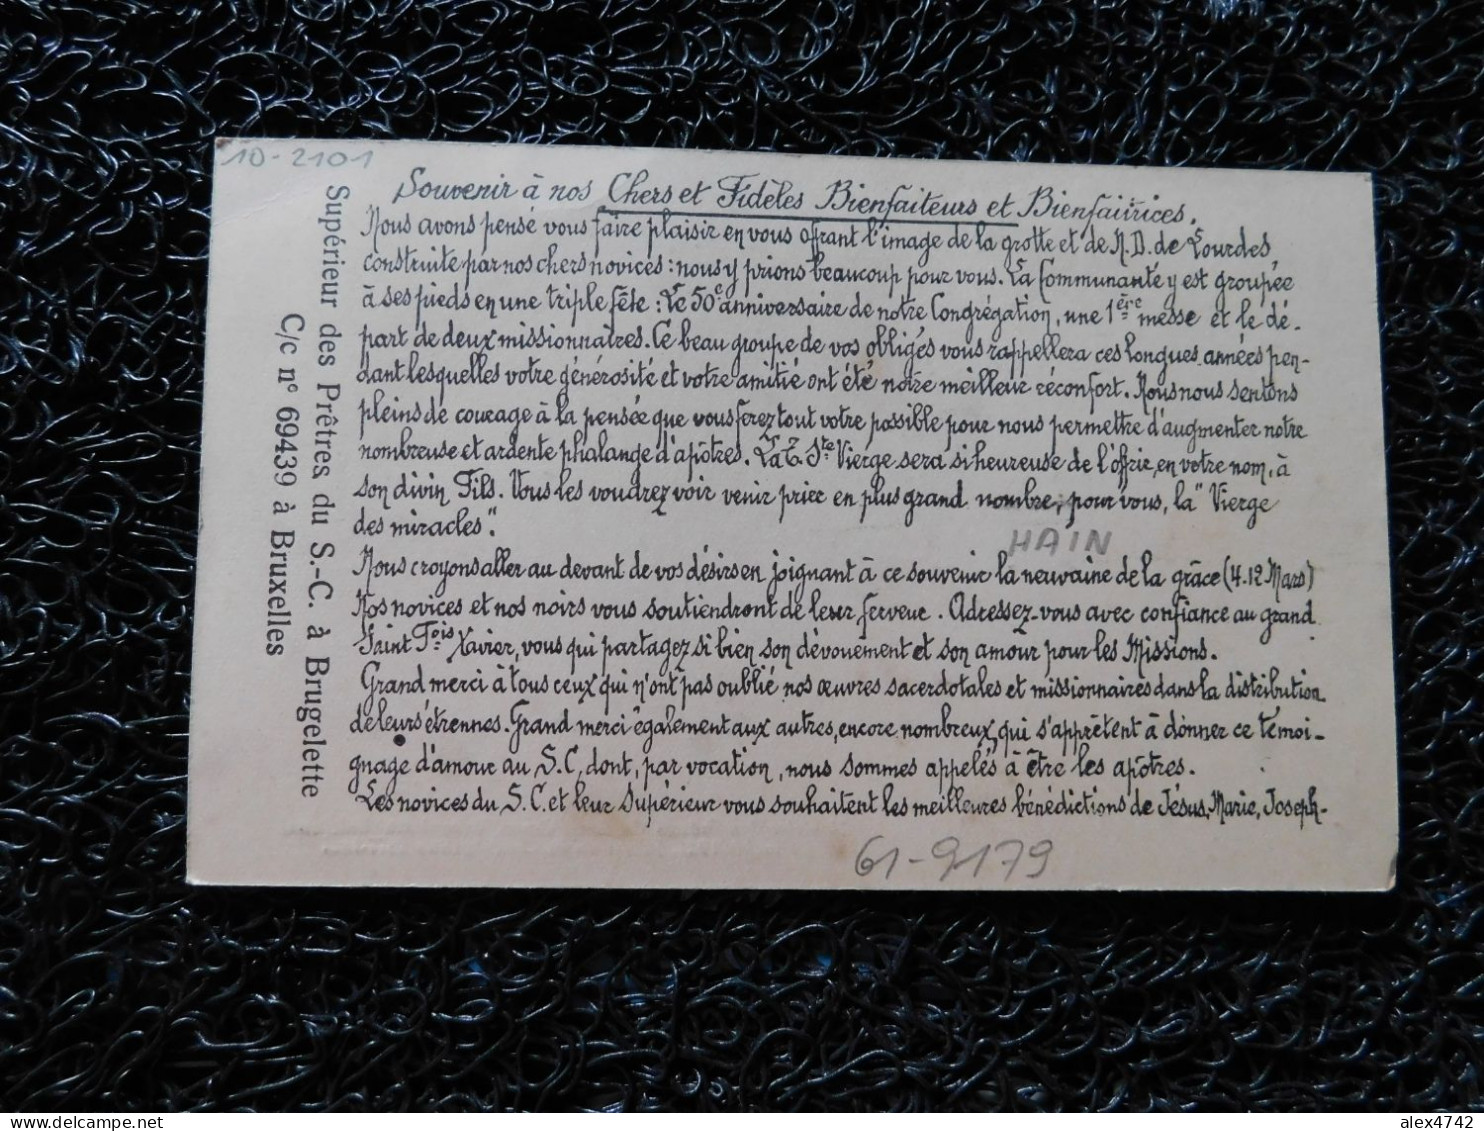 10-2101
Souvenir à nos Chers et Fidèles Bienfaiteurs et Bienfaitrices.
Nous avons pensé vous faire plaisir en vous offrant l'image de la grotte et de N.D. de Lourdes,
construite par nos chers novices : nous y prions beaucoup pour vous. La Communauté y est groupée
à ses pieds en une triple fête : Le 50e anniversaire de notre Congrégation, une 1ère messe et le dé-
part de deux missionnaires. Ce beau groupe de vos obligés vous rappellera ces longues années pen-
dant lesquelles votre générosité et votre amitié ont été notre meilleur réconfort. Nous nous sentons
pleins de courage à la pensée que vous ferez tout votre possible pour nous permettre d'augmenter notre
nombreuse et ardente phalange d'apôtres. La T. Ste Vierge sera si heureuse de l'offrir, en votre nom, à
son divin Fils. Vous les voudrez voir venir prier en plus grand nombre, pour vous, la "Vierge
des miracles".
HAIN
Nous croyons aller au devant de vos désirs en joignant à ce souvenir la neuvaine de la grâce (4.12 Mars)
Nos novices et nos noirs vous soutiendront de leur ferveur. Adressez-vous avec confiance au grand
Saint Fois Xavier, vous qui partagez si bien son dévouement et son amour pour les Missions.
Grand merci à tous ceux qui n'ont pas oublié nos œuvres sacerdotales et missionnaires dans la distribution
de leurs étrennes. Grand merci également aux autres, encore nombreux, qui s'apprêtent à donner ce témoi-
gnage d'amour au S.C, dont, par vocation, nous sommes appelés à être les apôtres.
Les novices du S.C. et leur Supérieur vous souhaitent les meilleures bénédictions de Jésus, Marie, Joseph-
Supérieur des Prêtres du S.-C. à Brugelette
C/c n° 69439 à Bruxelles
61-9179
alex4742